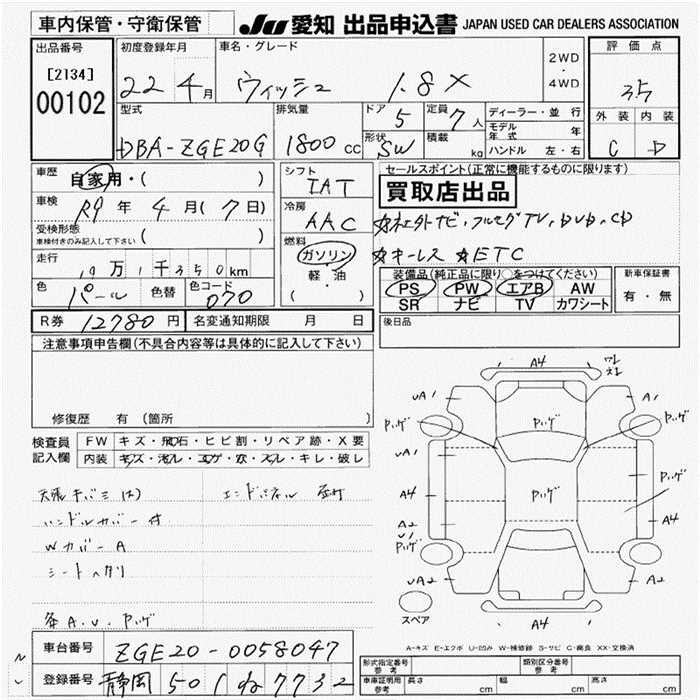 車内保管・守衛保管 JU 愛知 出品申込書 JAPAN USED CAR DEALERS ASSOCIATION
出品番号 初度登録年月 車名・グレード 2WD・4WD 評価点
[2134] 22 4月 ウィッシュ 1.8X 3.5
00102
型式 排気量 ドア 5 定員 7人 ディーラー・並行 外装 内装
モデル年式 年
DBA-ZGE20G 1800cc 形状 SW 積載 kg ハンドル 左・右 C D
車歴 自家用・( ) シフト セールスポイント(正常に機能するものに限ります)
IAT 買取店出品
車検 R9年 4月(7日) 冷房
AAC ☆ネエクトナビ・フルセグTV,DVD,CD
受検形態 車検付きのみ記入して下さい ( ) 燃料
ガソリン ☆キーレス ☆ETC
走行 10万1千350km 軽・油 装備品(純正品に限り○をつけてください) 新車保証書
色 パール 色替 色コード 070 ( ) PS PW エアB AW 有・無
SR ナビ TV カワシート
R券 12780円 名変通知期限 月 日 後日品
注意事項申告欄(不具合内容等は具体的に記入して下さい)
修復歴 有(箇所
検査員記入欄 FW キズ・飛石・ヒビ割・リペア跡・X要
内装 キズ・汚レ・コゲ・穴・スレ・キレ・破レ
A4
UA1 ハゲ A1
ハゲ ハゲ
UA1
A4 ハゲ ハゲ
A2 A4
U1
ハゲ
UA2 A2
A4
天張キバミ(大) エンドパネル
ハンドルカバー付
WカバーA
シートヘタリ
条A.U.ハゲ
スペア
A-キズ E-エクボ U-凹み W-補修跡 S-サビ C-腐食 XX-交換済
車台番号 ZGE20-0058047
登録番号 静岡 501 ね 7732
形式指定番号 参考 類別区分番号 参考
車庫証明用 参考 長さ cm 幅 cm 高さ cm